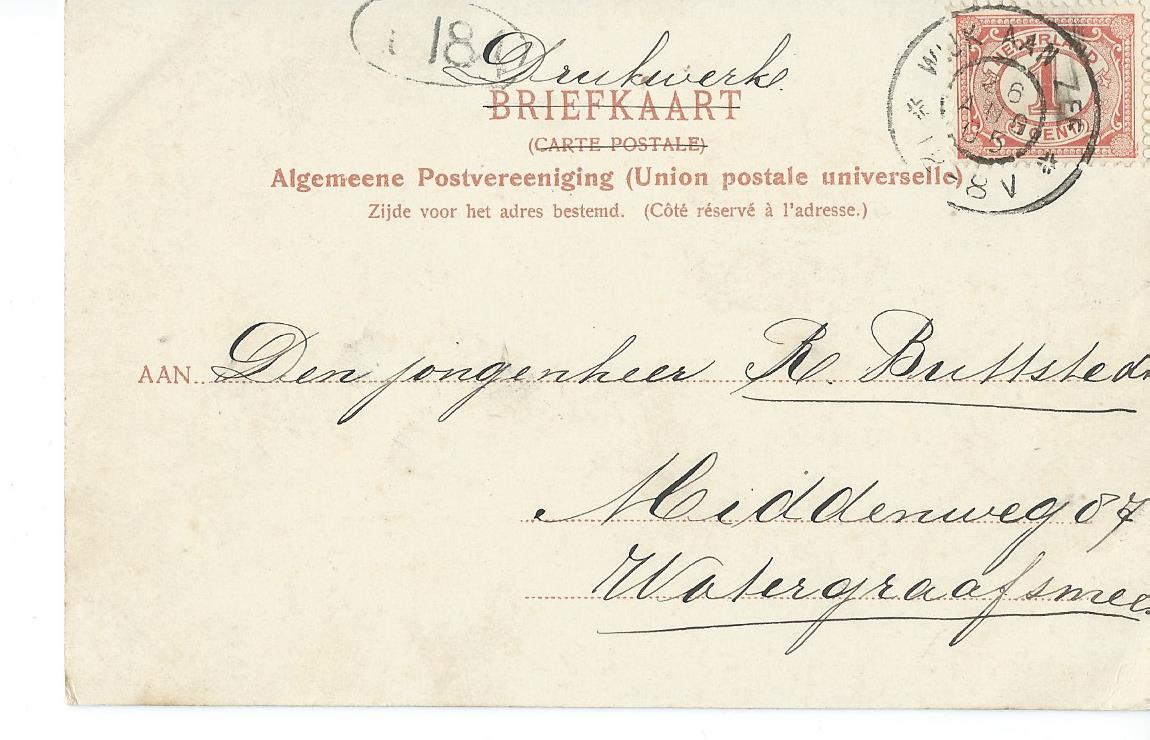 180
Drukwerk.
BRIEFKAART
(CARTE POSTALE)
Algemeene Postvereeniging (Union postale universelle)
Zijde voor het adres bestemd. (Côté réservé à l'adresse.)
NEDERLAND
1
CENT
WIJK AAN ZEE
6
AUG
05
8-12 V
AAN Den jongenheer R. Buttstedt
Middenweg 87
Watergraafsmee